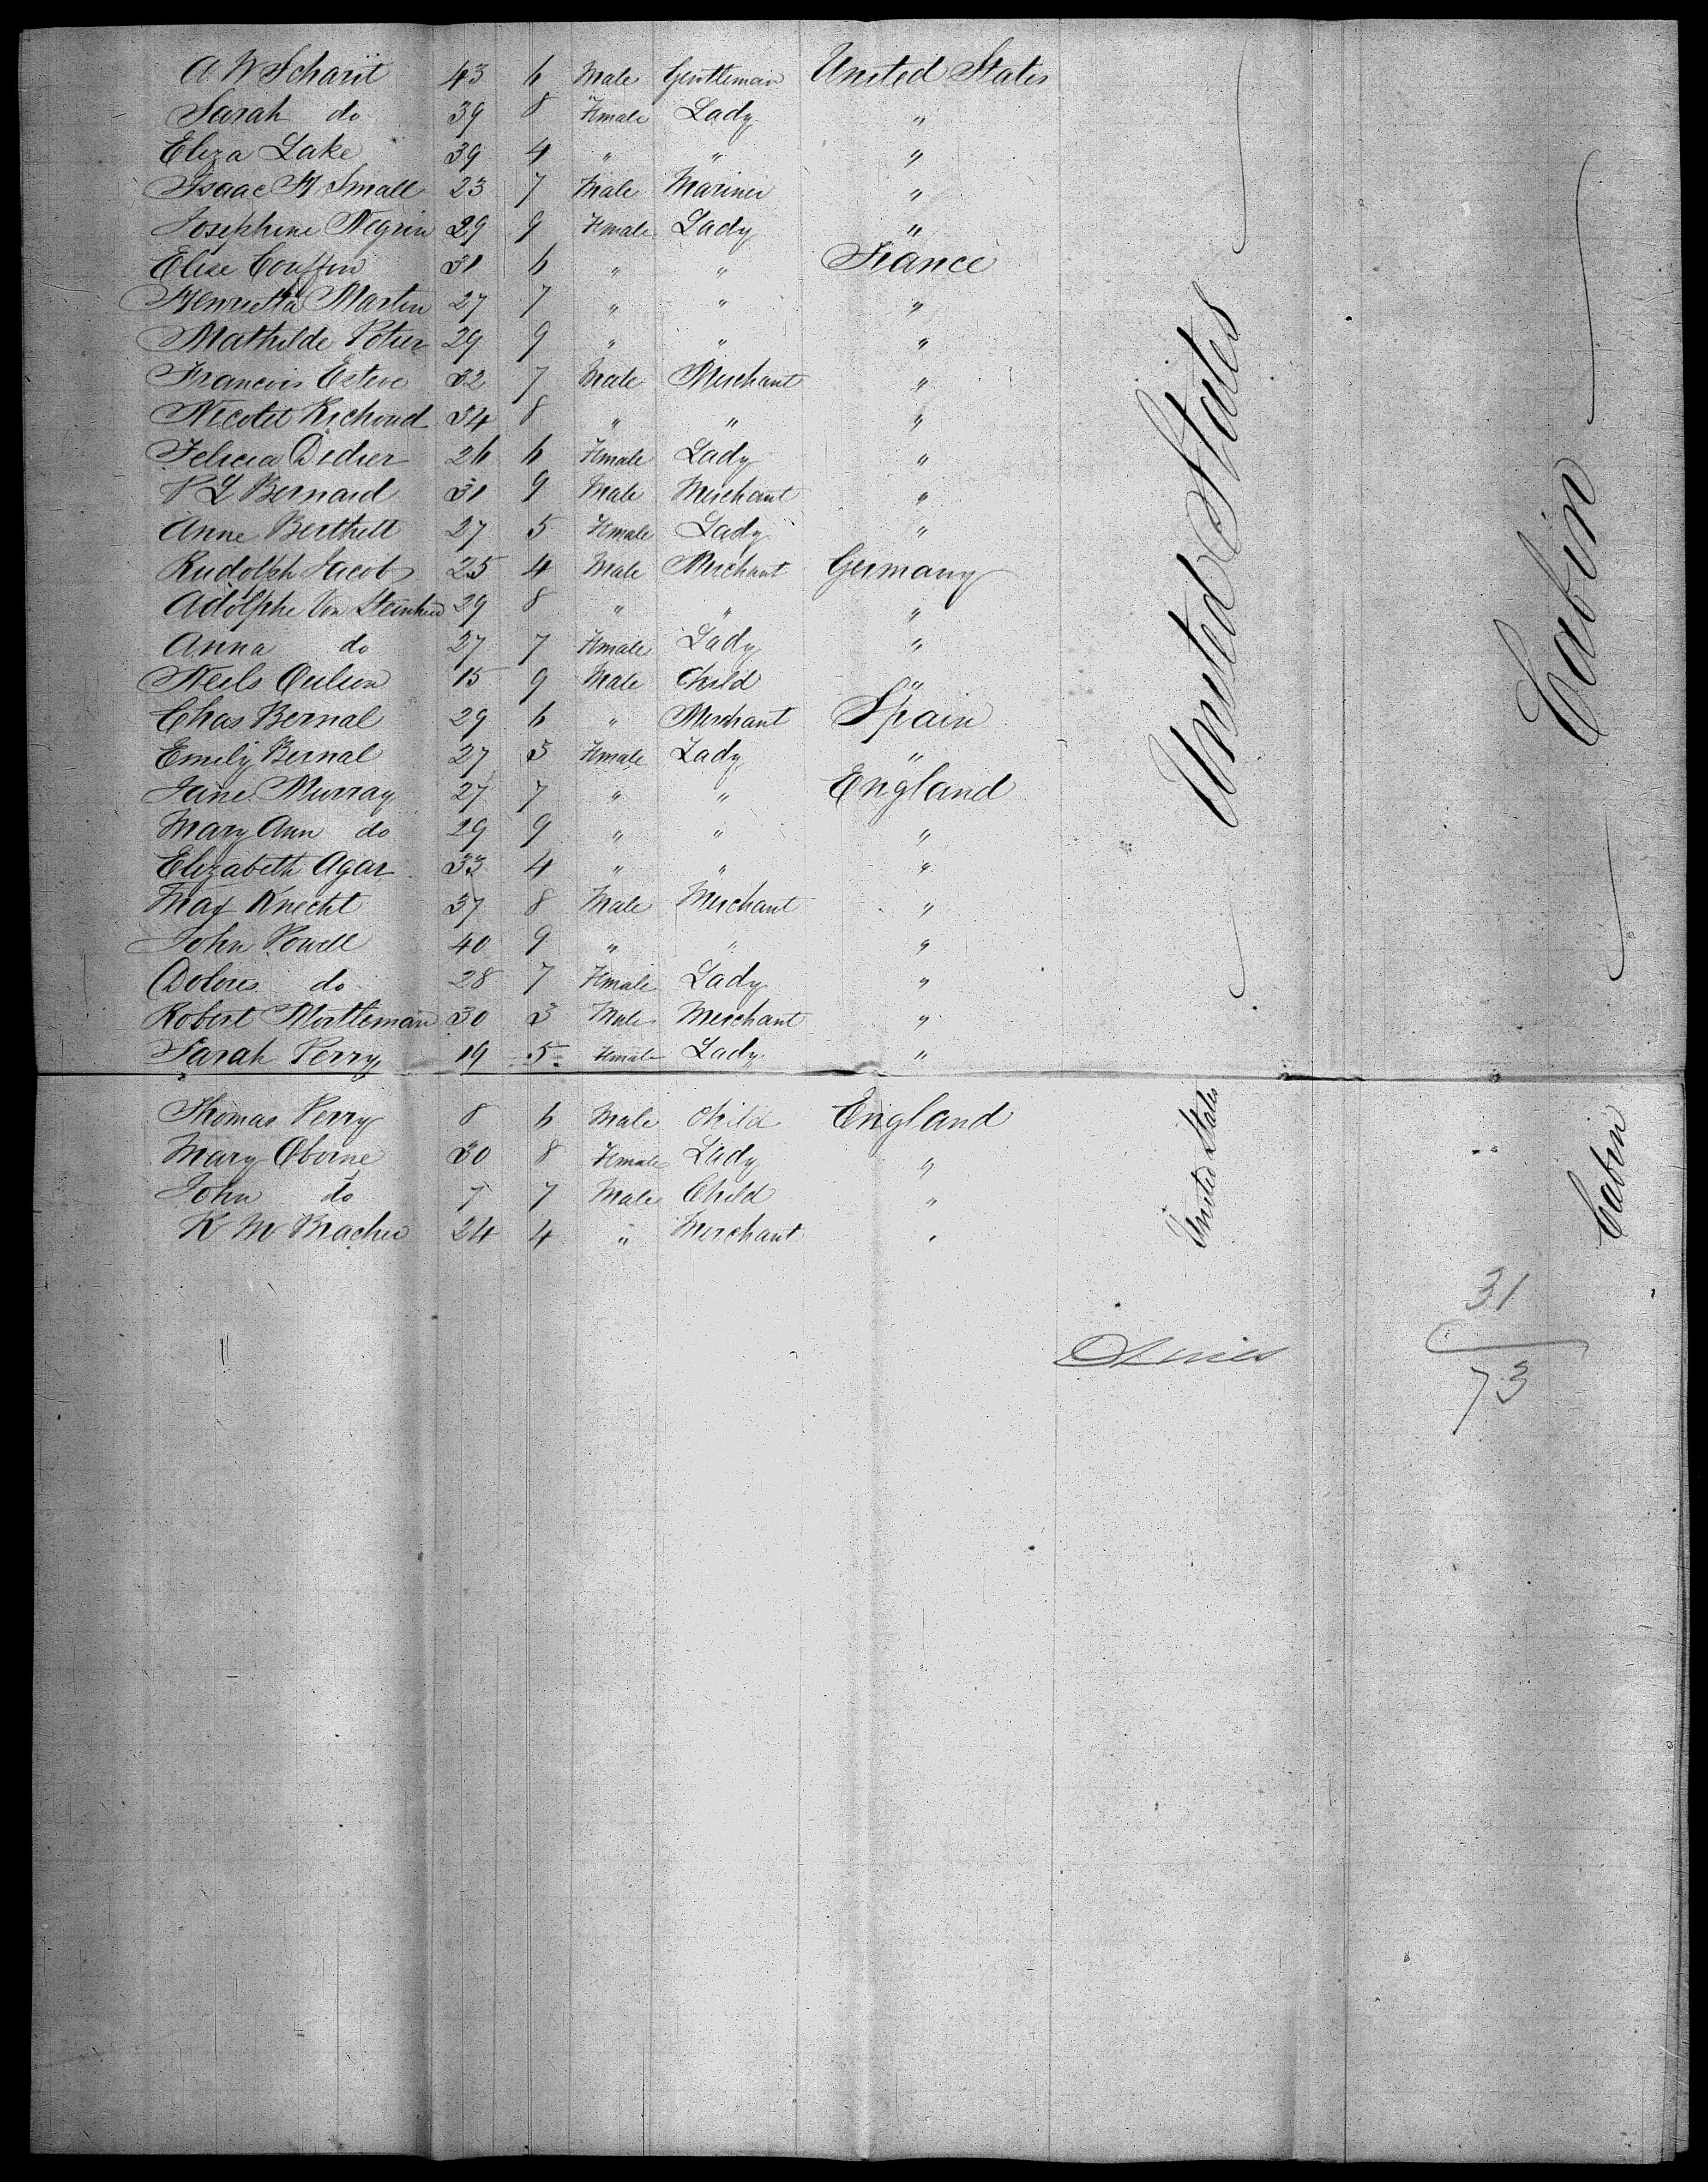 A W Scharit 43 6 Male Gentleman United States
Sarah do 39 8 Female Lady "
Eliza Lake 39 4 " " "
Isaac H Small 23 7 Male Mariner "
Josephine Negrin 29 9 Female Lady "
Elise Couffin 31 6 " " France
Henrietta Martin 27 7 " " "
Mathilde Potier 29 9 " " "
Francois Esteve 32 7 Male Merchant "
Nicolet Richoud 34 8 " " "
Felicia Didier 26 6 Female Lady "
P L Bernard 31 9 Male Merchant "
Anne Berthelt 27 5 Female Lady "
Rudolph Jacobs 25 4 Male Merchant Germany
Adolphe Von 29 8 " " "
Anna do 27 7 Female Lady "
Neils 15 9 Male Child "
Chas Bernal 29 6 " Merchant Spain
Emily Bernal 27 5 Female Lady "
Jane Murray 27 7 " " England
Mary Ann do 29 9 " " "
Elizabeth Agar 33 4 " " "
Max Knecht 37 8 Male Merchant "
John Powell 40 9 " " "
Dolores do 28 7 Female Lady "
Robert Mortleman 30 3 Male Merchant "
Sarah Perry 19 5 Female Lady "
United States
Cabin
Thomas Perry 8 6 Male Child England
Mary Oborne 30 8 Female Lady "
John do 7 7 Male Child "
K M Bracher 24 4 " Merchant "
United States
Cabin
31
73